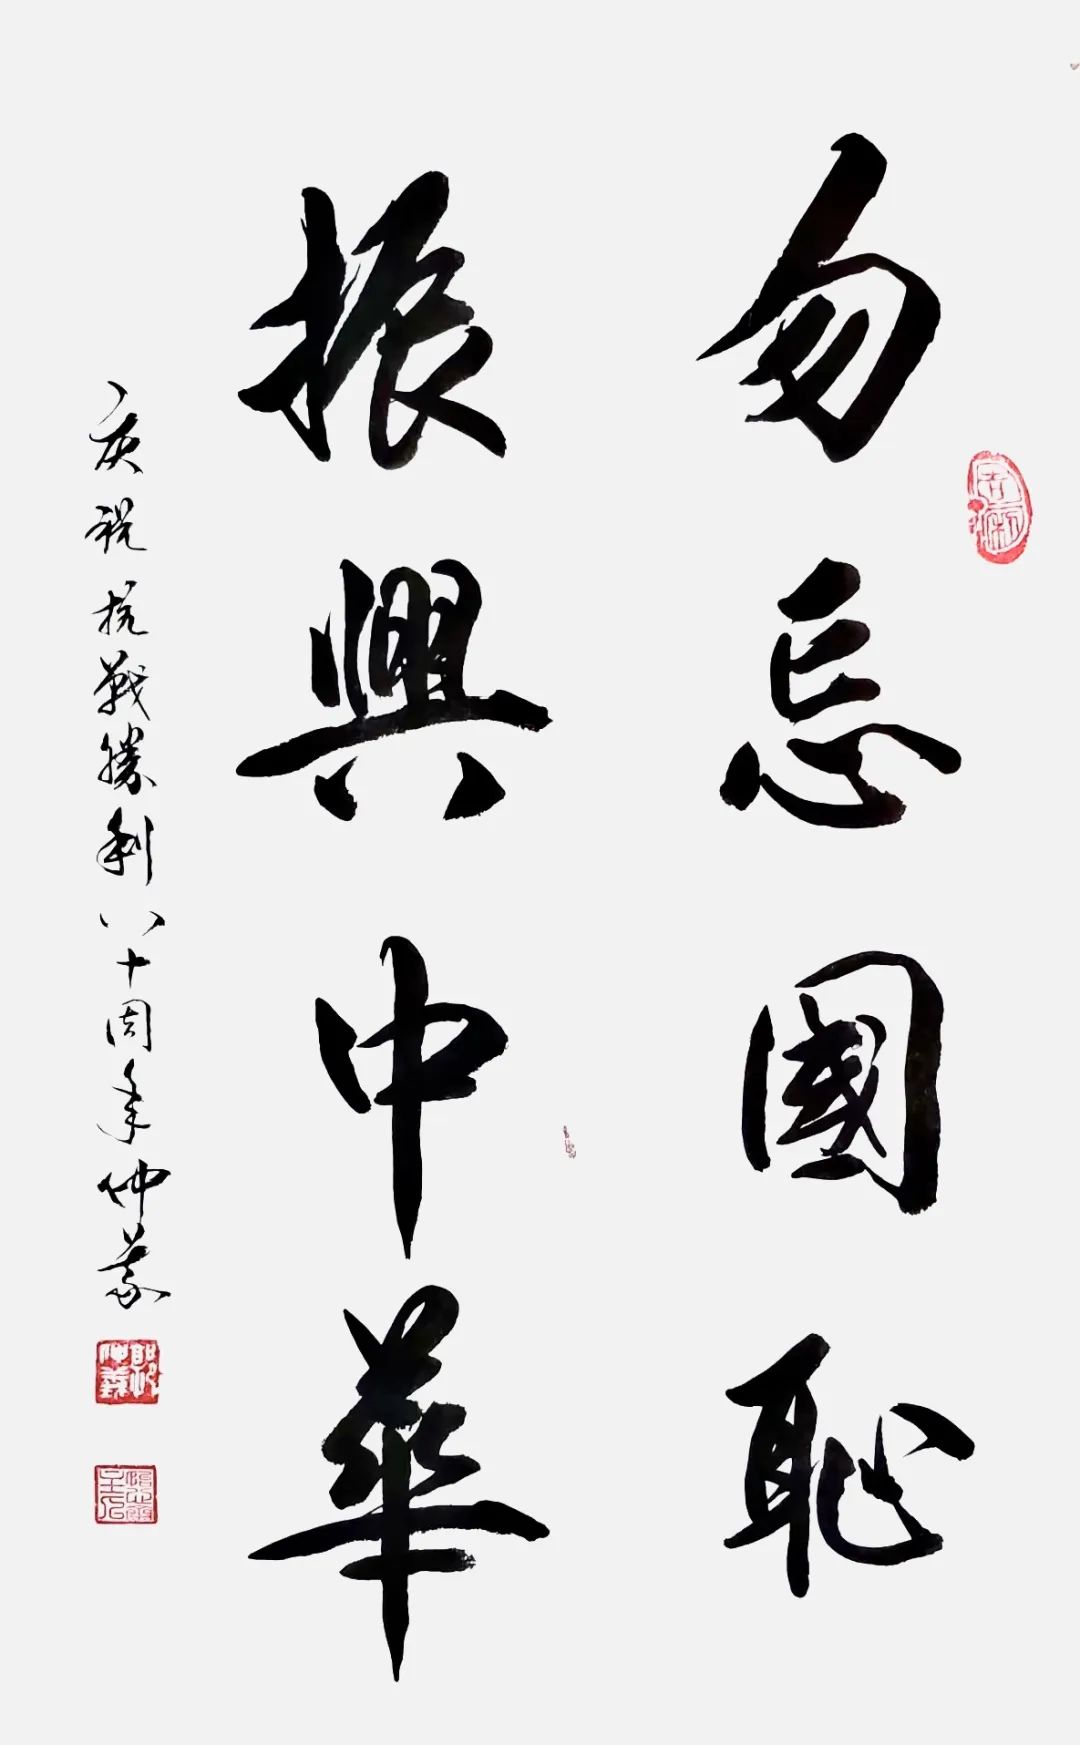 勿忘國恥
振興中華
庆祝抗戰勝利八十周年仲義